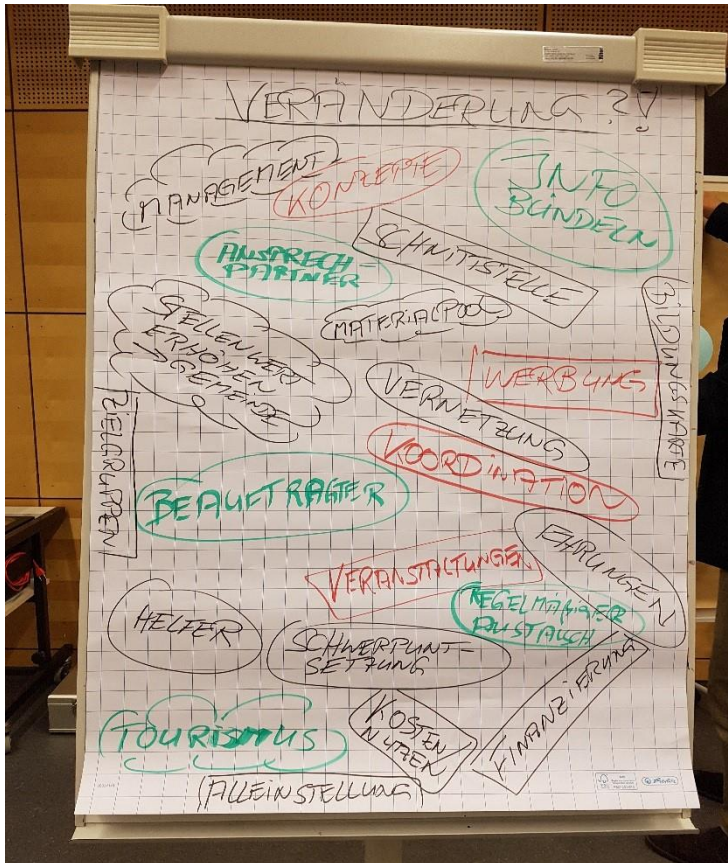 VERÄNDERUNG ?!
MANAGEMENT
KONZEPTE
INFO
BÜNDELN
SCHNITTSTELLE
ANSPRECH-
PARTNER
MATERIALPOOL
GELLENWERT
ERHÖHEN
GEMEINDE
WERBUNG
VERNETZUNG
KOORDINATION
ZIELGRUPPEN
BEAUFTRAGTER
EHRUNGEN
VERANSTALTUNGEN
REGELMÄßIGER
AUSTAUSCH
HELFER
SCHWERPUNT-
SETZUNG
FINANZIERUNG
KOSTEN
NUTZEN
TOURISMUS
ALLEINSTELLUNG